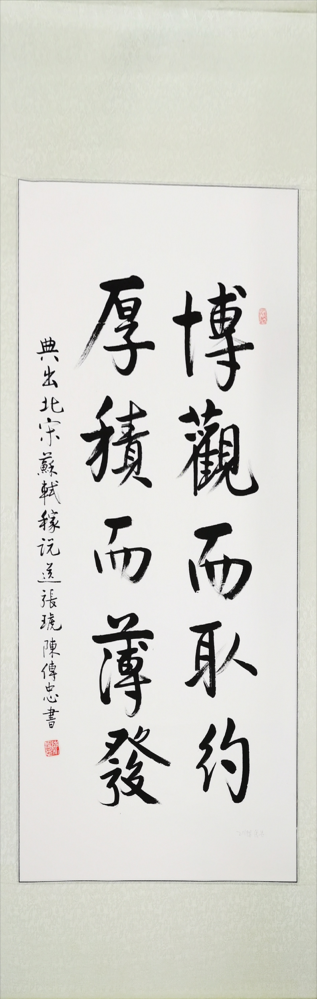 博觀而取約
厚積而薄發
典出北宋蘇軾稼説送張琥陳傳忠書